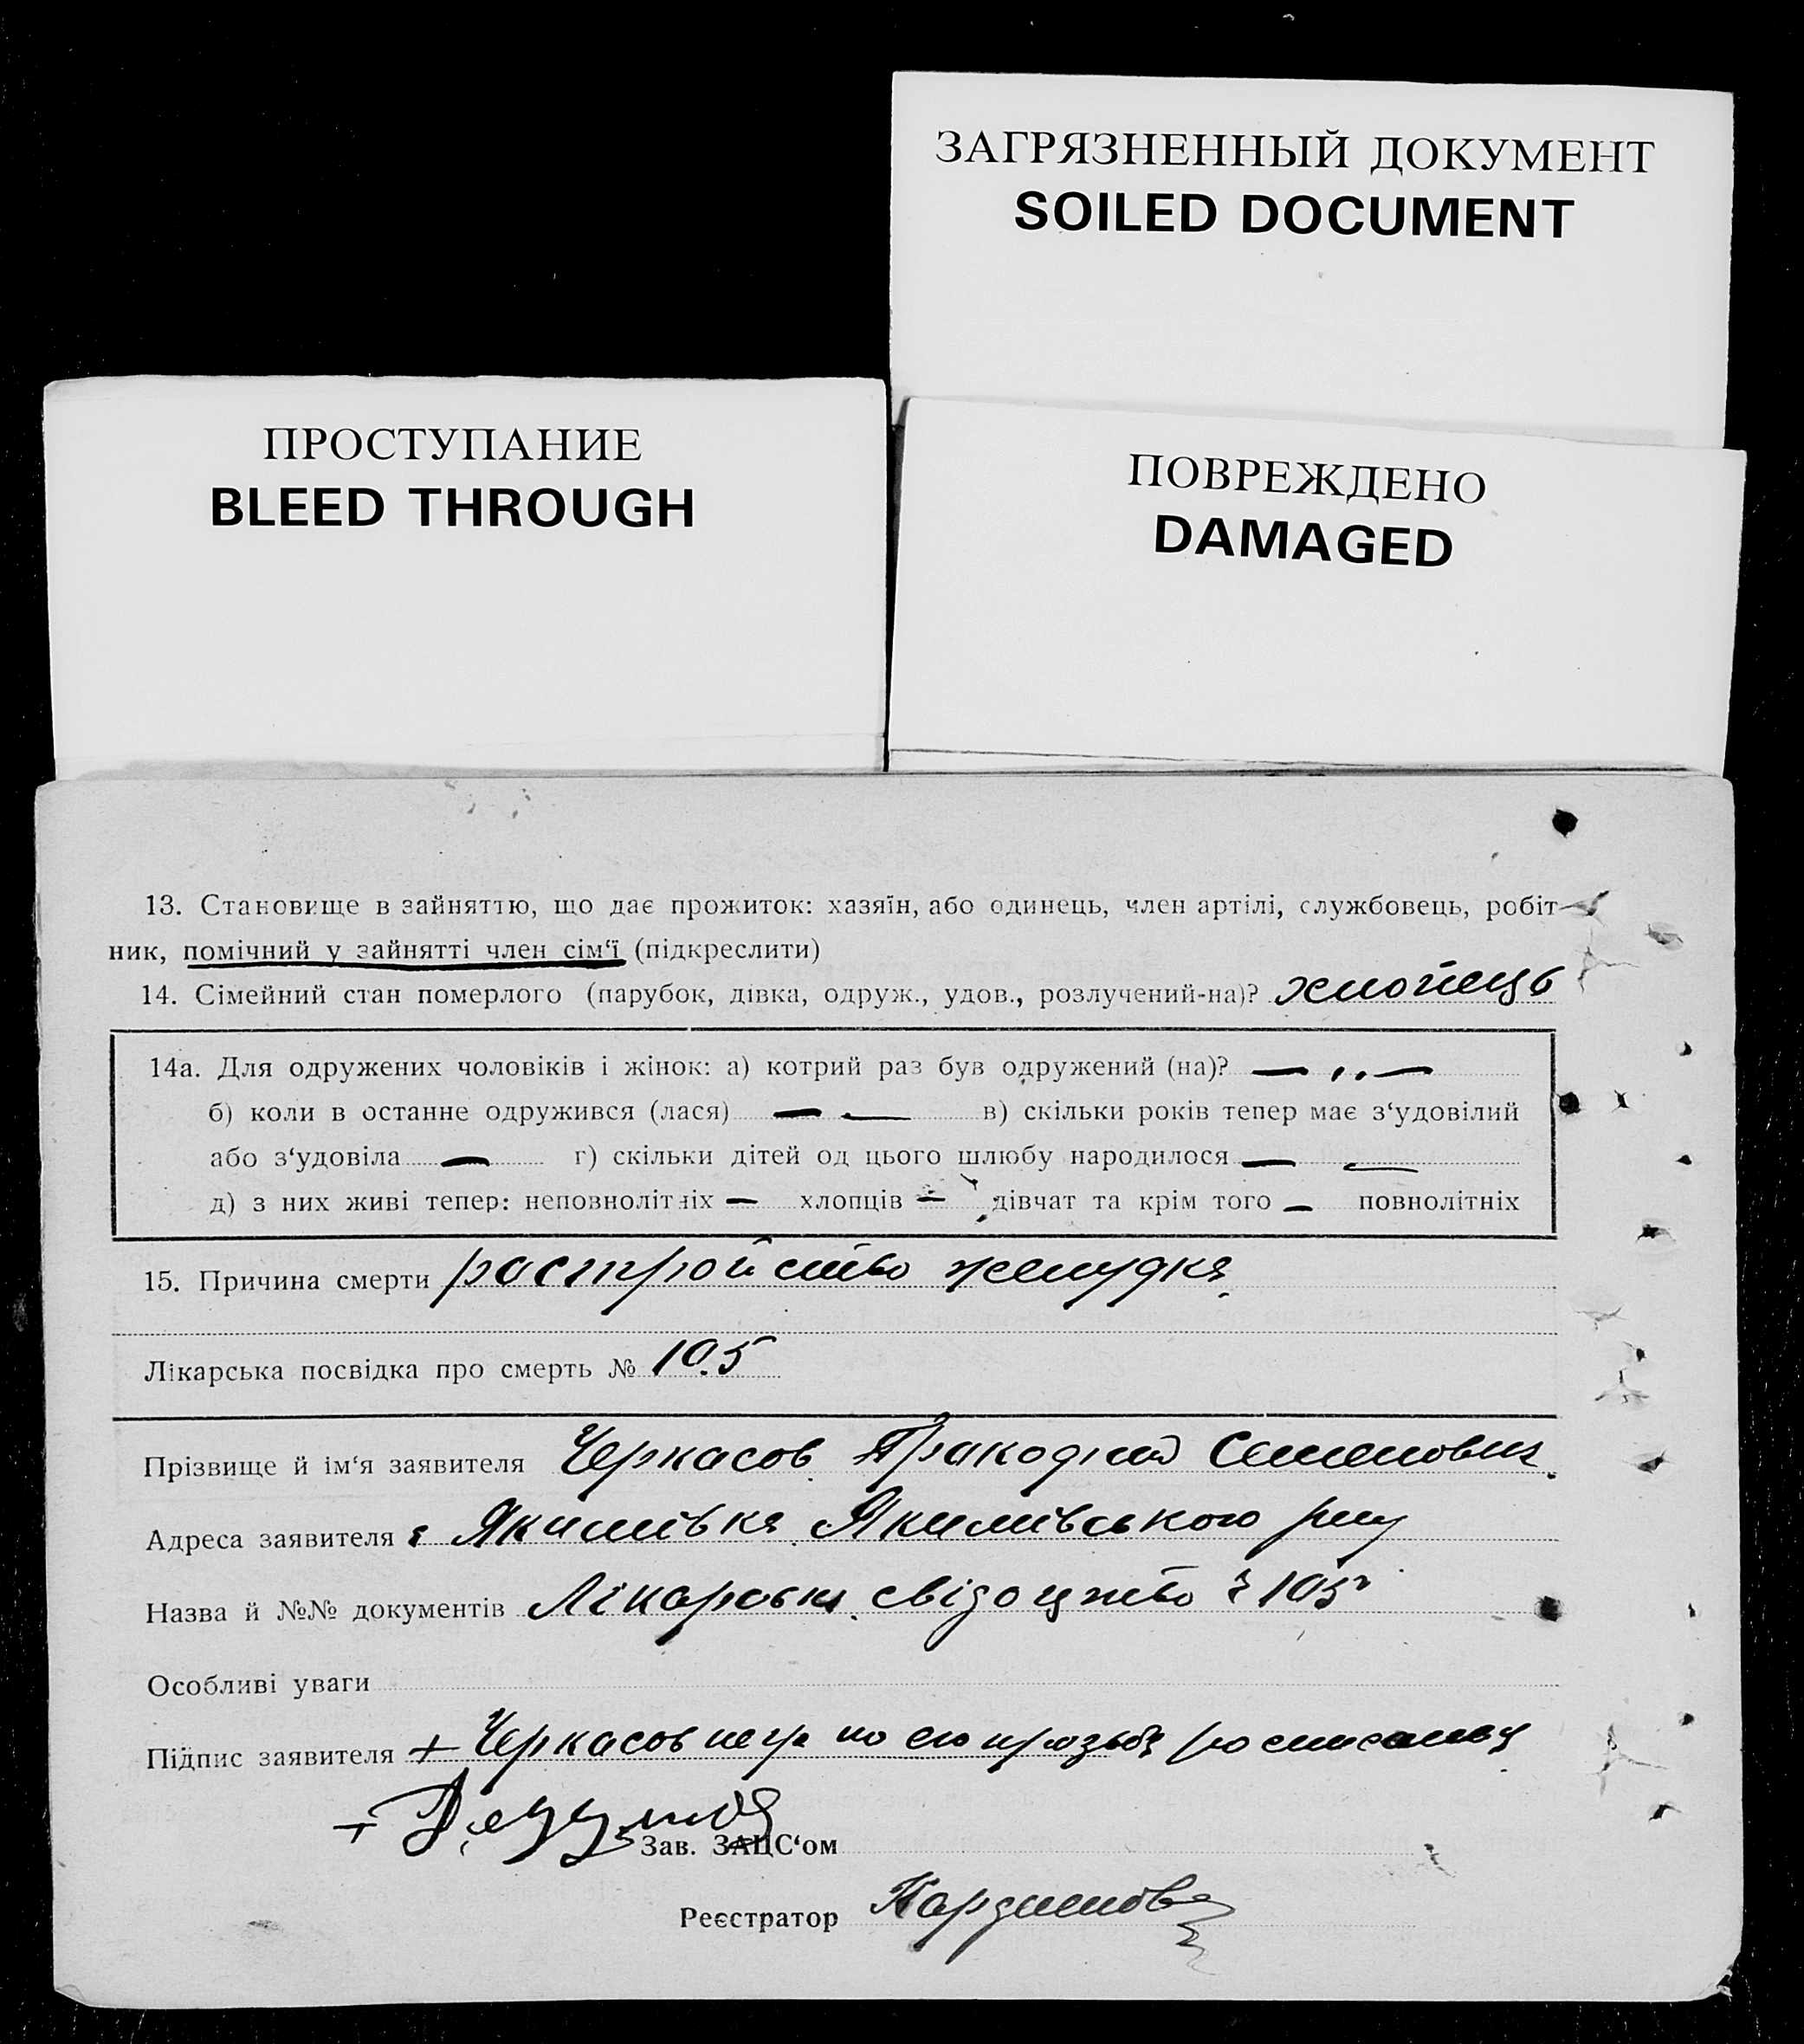 ЗАГРЯЗНЕННЫЙ ДОКУМЕНТ
SOILED DOCUMENT
ПРОСТУПАНИЕ
BLEED THROUGH
ПОВРЕЖДЕНО
DAMAGED
13. Становище в зайняттю, що дає прожиток: хазяїн, або одинець, член артілі, службовець, робіт-
ник, помічний у зайнятті член сім‘ї (підкреслити)
14. Сімейний стан померлого (парубок, дівка, одруж., удов., розлучений-на)? хлопець
14а. Для одружених чоловіків і жінок: а) котрий раз був одружений (на)? — „ —
б) коли в останне одружився (лася) — — в) скільки років тепер має з‘удовілий
або з‘удовіла — г) скільки дітей од цього шлюбу народилося — —
д) з них живі тепер: неповнолітніх — хлопців — дівчат та крім того — повнолітніх
15. Причина смерти расстройство желудка
Лікарська посвідка про смерть № 105
Прізвище й ім‘я заявителя Черкасов Семенович
Адреса заявителя с Якимівка Якимівського р-ну
Назва й №№ документів Лікарське свідоцтво № 105
Особливі уваги
Підпис заявителя + Черкасов негр по его прозьбе
Зав. ЗАЦС‘ом
Реєстратор